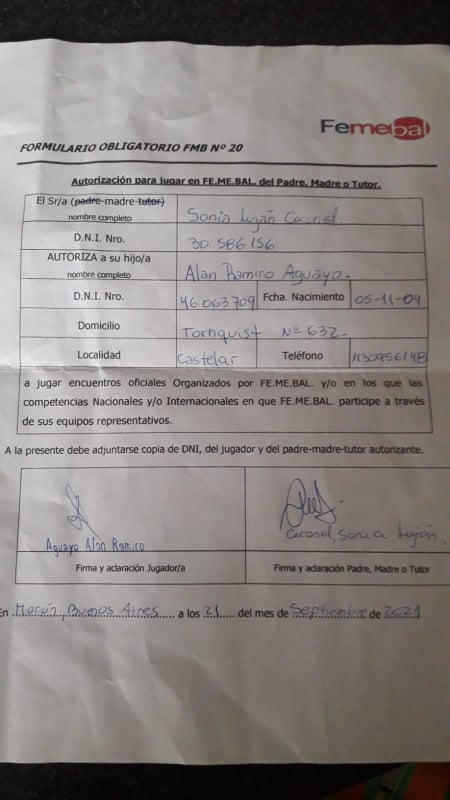 Femebal
FORMULARIO OBLIGATORIO FMB Nº 20
Autorización para jugar en FE.ME.BAL. del Padre, Madre o Tutor.
El Sr/a (padre-madre-tutor) nombre completo Sonia Luján Coronel
D.N.I. Nro. 30.586156
AUTORIZA a su hijo/a nombre completo Alan Ramiro Aguayo.
D.N.I. Nro. 46.063709 Fcha. Nacimiento 05-11-04
Domicilio Tornquist Nº 632-
Localidad Castelar Teléfono 1130956148
a jugar encuentros oficiales Organizados por FE.ME.BAL. y/o en los que las
competencias Nacionales y/o Internacionales en que FE.ME.BAL. participe a través
de sus equipos representativos.
A la presente debe adjuntarse copia de DNI, del jugador y del padre-madre-tutor autorizante.
Aguayo Alan Ramiro
Coronel, Sonia Luján.
Firma y aclaración Jugador/a
Firma y aclaración Padre, Madre o Tutor
En Morón, Buenos Aires a los 21 del mes de Septiembre de 2021